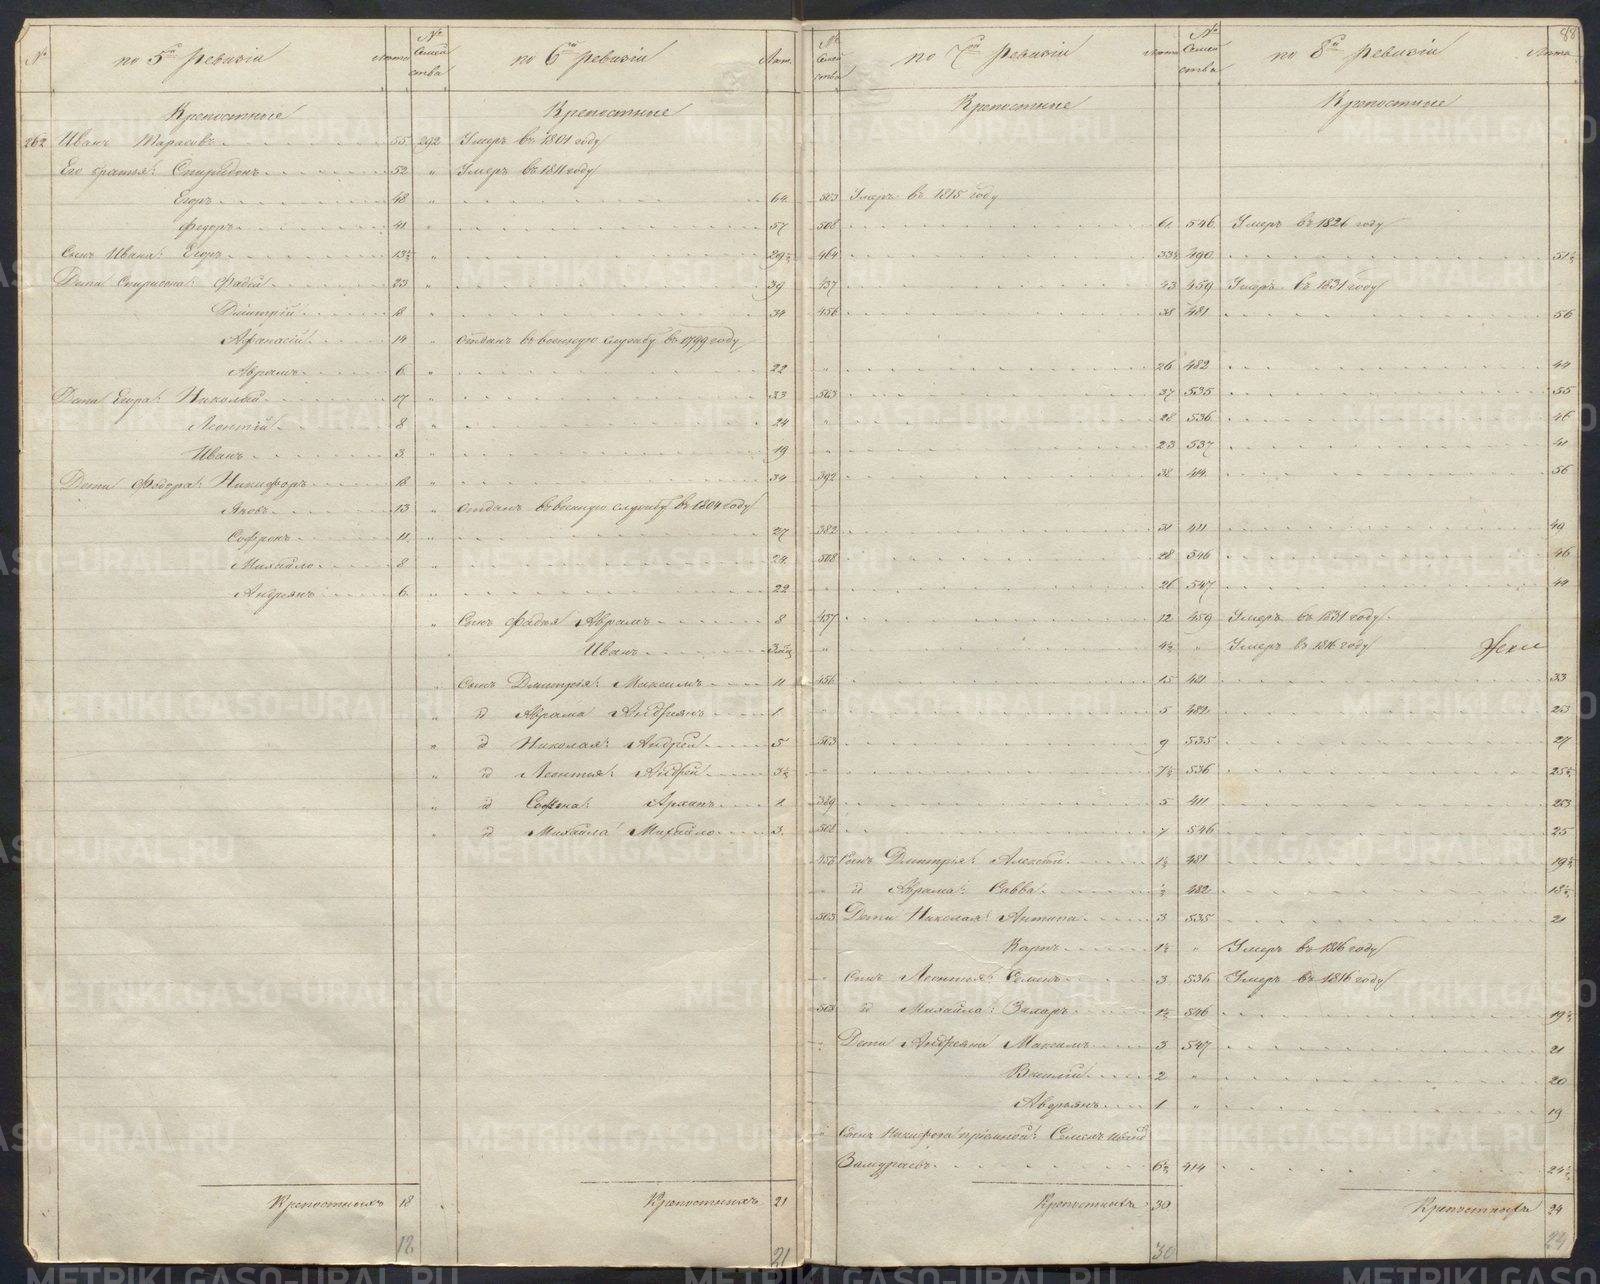 88
№ по 5й ревизіи Лѣта № Семейства по 6й ревизіи Лѣт. № Семейства по 7й ревизіи Лѣта № Семейства по 8й ревизіи Лѣта
Крепостные Крепостные Крепостные Крепостные
262 Иванъ Тарасовъ 55 292 Умеръ въ 1801 году
Его братья: Спиридонъ 52 " Умеръ въ 1811 году
Егоръ 48 " 64 503 Умеръ въ 1815 году
Федоръ 41 " 57 508 61 546 Умеръ въ 1826 году
Сынъ Ивана: Егоръ 13½ " 29½ 464 33½ 490 51½
Дети Спиридона: Фадей 23 " 39 437 43 459 Умеръ въ 1831 году
Дмитрій 18 " 34 456 38 481 56
Афанасій 14 " Отданъ въ военную службу въ 1799 году
Абрамъ 6 " 22 " 26 482 44
Дети Егора: Николай 17 " 33 503 37 535 55
Леонтій 8 " 24 " 28 536 46
Иванъ 3 " 19 " 23 537 41
Дети Федора: Никифоръ 18 " 34 392 38 414 56
Яковъ 13 " Отданъ въ военную службу въ 1804 году
Софронъ 11 " 27 382 31 411 49
Михайло 8 " 24 508 28 546 46
Андреянъ 6 " 22 26 547 44
" Сынъ Фадея Абрамъ 8 437 12 459 Умеръ въ 1831 году
Иванъ " 4½ " Умеръ въ 1816 году
" Сынъ Дмитрія: Максимъ 11 456 15 481 33
" id Абрама Андреянъ 1 " 5 482 23
" id Николая: Андрей 5 503 9 535 27
" id Леонтья: Андрей 3½ " 7½ 536 25½
" id Софрона: Архипъ 1 389 5 411 23
" id Михайла Михайло 3 508 7 546 25
456 Сынъ Дмитрія: Алексей 1½ 481 19½
" id Абрама: Савва ½ 482 18½
503 Дети Николая: Антипа 3 535 21
Карпъ 1½ " Умеръ въ 1816 году
" Сынъ Леонтья: Семенъ 3 536 Умеръ въ 1816 году
508 id Михайла: Захаръ 1½ 546 19½
" Дети Андреяна Максимъ 3 547 21
Василій 2 " 20
Авдеянъ 1 " 19
" Сынъ Никифора пріемной: Семенъ
6½ 414 24½
Крепостныхъ 18 Крепостныхъ 21 Крепостныхъ 30 Крепостныхъ 24
18 21 30 24
METRIKI.GASO-URAL.RU